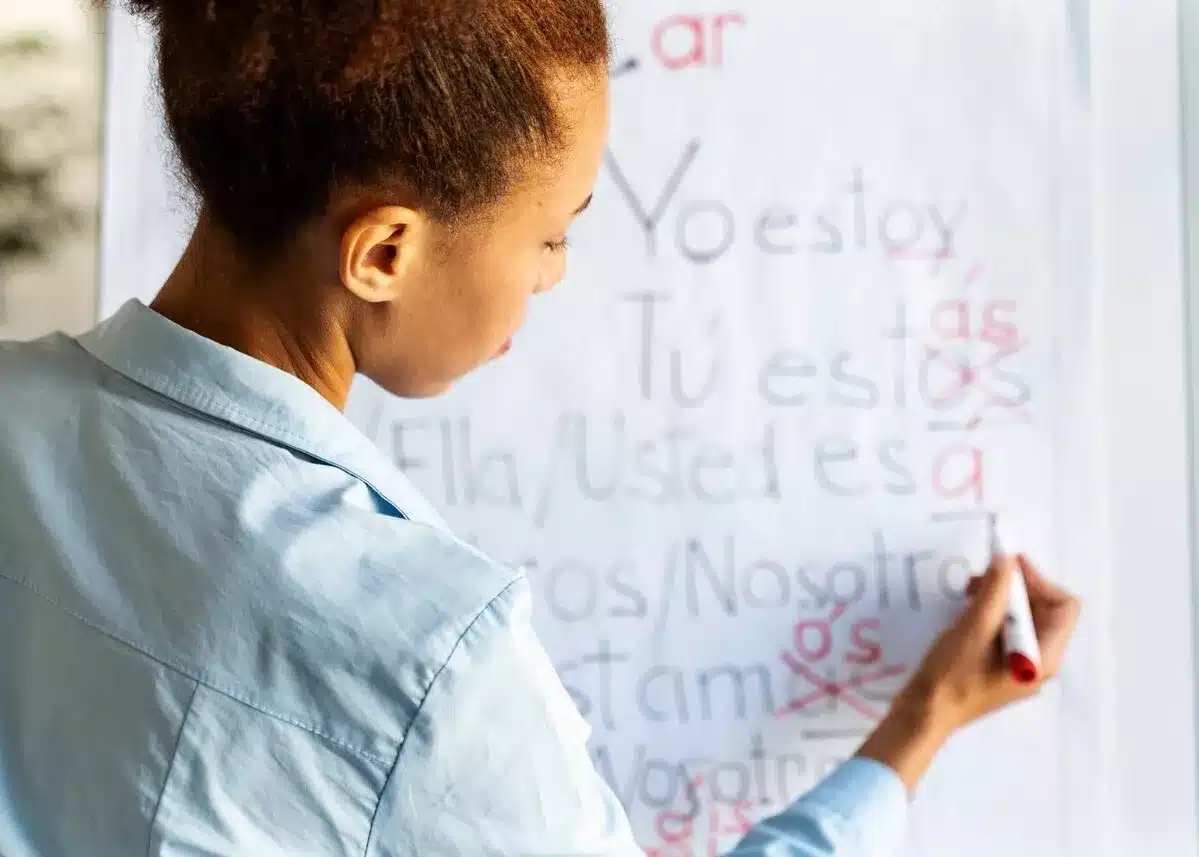 ar
Yo estoy
ás
Tú estos
Ella/Usted está
ros/Nosotro
ós
stam
Vosotr
áis